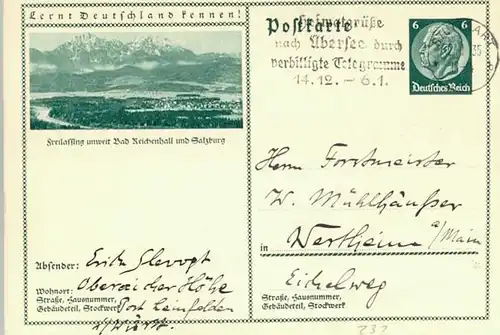 Lernt Deutschland kennen!
Freilassing unweit Bad Reichenhall und Salzburg
Postkarte
Heimatgrüße
nach Übersee durch
verbilligte Telegramme
14.12. – 6.1.
6 6
Deutsches Reich
35
Herrn Forstmeister
W. Mühlhäußer
in Wertheim a/Main
Eichelweg
Straße, Hausnummer,
Gebäudeteil, Stockwerk
Absender: Erich
Wohnort: Oberaicher Höhe
Straße, Hausnummer, Post Leinfelden
Gebäudeteil, Stockwerk
232